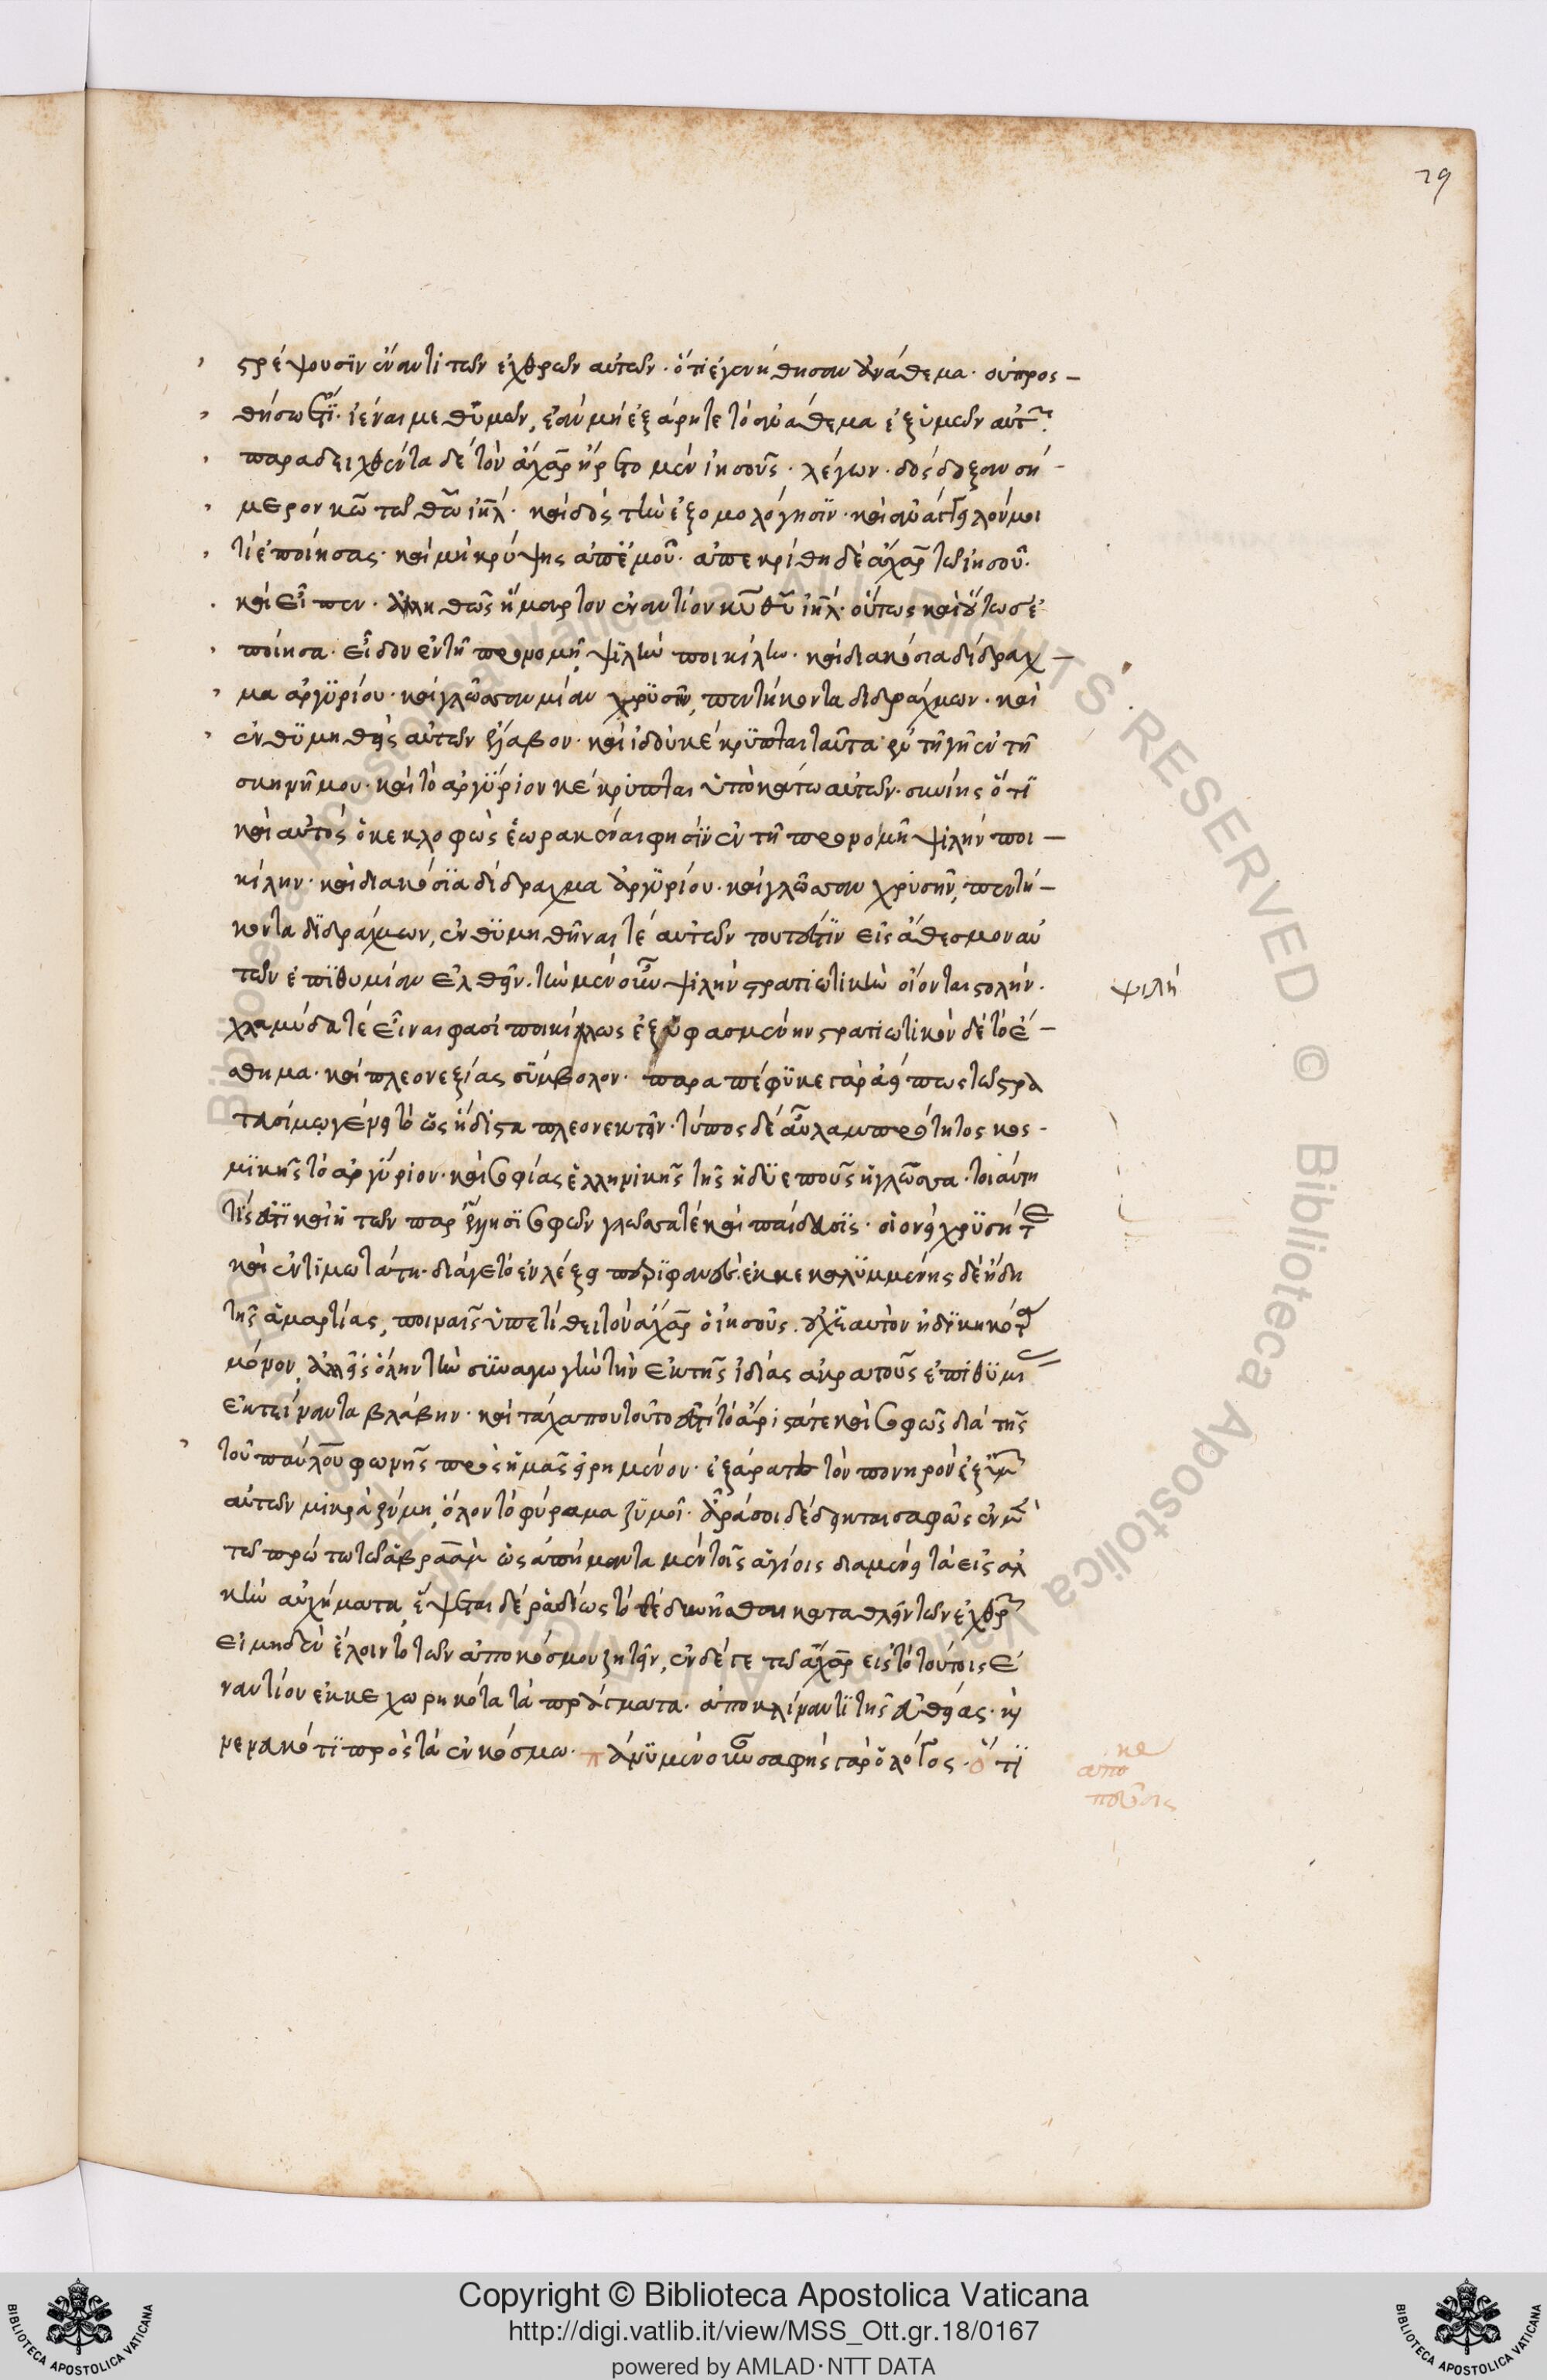 79
στρέψουσιν ἔναντι τῶν ἐχθρῶν αὐτῶν· ὅτι ἐγενήθησαν ἀνάθεμα· οὐ προσ-
θήσω ἔτι ἰέναι μεθ' ὑμῶν, ἐὰν μὴ ἐξάρητε τὸ ἀνάθεμα ἐξ ὑμῶν αὐτῶν·
παραδειχθέντα δὲ τὸν ἄχαρ ἤρετο μὲν ἰησοῦς· λέγων· δὸς δόξαν σή-
μερον κω τῶ θω ιηλ· καὶ δὸς τὴν ἐξομολόγησιν· καὶ ἀνάγγειλόν μοι
τί ἐποίησας· καὶ μὴ κρύψης ἀπ' ἐμοῦ· ἀπεκρίθη δὲ ἄχαρ τῶ ἰησοῦ·
καὶ εἶπεν· ἀληθῶς ἥμαρτον ἐναντίον κυ θυ ιηλ· οὕτως καὶ οὕτως ἐ
ποίησα· εἶδον ἐν τῆ προνομῆ ψιλὴν ποικίλην· καὶ διακόσια δίδραχ-
μα ἀργυρίου· καὶ γλῶσσαν μίαν χρυσῆν, πεντήκοντα διδράχμων· καὶ
ἐνθυμηθεὶς αὐτῶν ἔλαβον· καὶ ἰδοὺ κέκρυπται ταῦτα ἐν τῆ γῆ ἐν τῆ
σκηνῆ μου· καὶ τὸ ἀργύριον κέκρυπται ὑποκάτω αὐτῶν· συνίης ὅτι
καὶ αὐτὸς ὁ κεκλοφὼς ἑωρακέναι φησὶν ἐν τῆ προνομῆ ψιλὴν ποι-
κίλην· καὶ διακόσια δίδραχμα ἀργυρίου· καὶ γλῶσσαν χρυσῆν, πεντή-
κοντα διδράχμων, ἐνθυμηθῆναι τὲ αὐτῶν τουτέστιν εἰς ἄθεσμον αὐ
τῶν ἐπιθυμίαν ἐλθεῖν· τὴν μὲν οὖν ψιλὴν στρατιωτικὴν οἴονται στολήν·
χλαμύδα τὲ εἶναι φασὶ ποικίλως ἐξυφασμένην στρατιωτικὸν δὲ τὸ ἔ-
σθημα· καὶ πλεονεξίας σύμβολον· παραπέφυκε γὰρ ἀεί πως τῶ στρα
τασίμω γένει τὸ ὡς ἥδιστα πλεονεκτεῖν· τύπος δὲ αὖ λαμπρότητος κοσ-
μικῆς τὸ ἀργύριον· καὶ σοφίας ἑλληνικῆς τῆς ἡδυεποῦς ἡ γλῶσσα· τοιαύτη
τίς ἐστι καὶ ἡ τῶν παρ' ἕλλησι σοφῶν γλῶσσα τὲ καὶ παίδευσις· οἱονεὶ χρυσῆ τὲ
καὶ ἐντιμωτάτη· διάγε τὸ ἐν λέξει περιφανές· ἐκκεκαλυμμένης δὲ ἤδη
τῆς ἁμαρτίας, ποιναῖς ὑπετίθει τὸν ἄχαρ ὁ ἰησοῦς· οὐχ ἑαυτὸν ἠδικηκότα
μόνον, ἀλλ' εἰς ὅλην τὴν συναγωγὴν τὴν ἐκ τῆς ἰδίας ἀκρατοῦς ἐπιθυμίας
ἐκτείναντα βλάβην· καὶ τάχα που τοῦτό ἐστι τὸ ἄριστά τε καὶ σοφῶς διὰ τῆς
τοῦ παύλου φωνῆς πρὸς ἡμᾶς εἰρημένον· ἐξάρατε τὸν πονηρὸν ἐξ ὑμῶν
αὐτῶν μικρὰ ζύμη, ὅλον τὸ φύραμα ζυμοῖ·
τῶ πρώτω τῶ ἀβραὰμ ὡς ἀπήμαντα μὲν τοῖς ἁγίοις διαμένει τὰ εἰς ἀλ
κὴν αὐχήματα, ἕψεται δὲ ῥαδίως τό τε δύνασθαι κατ' ἀθλεῖν τῶν ἐχθρῶν
εἰ μηδὲν ἕλοιντο τῶν ἀπὸ κόσμου ζητεῖν, ἐν δέ γε τῶ ἄχαρ εἰς τὸ τούτοις ἐ
ναντίον ἐκκεχωρηκότα τὰ πράγματα· ἀποκλίναντι τῆς ἀληθείας· καὶ
νενευκότι πρὸς τὰ ἐν κόσμω· πάνυ μὲν οὖν σαφὴς γὰρ ὁ λόγος· ὅτι
ψιλή